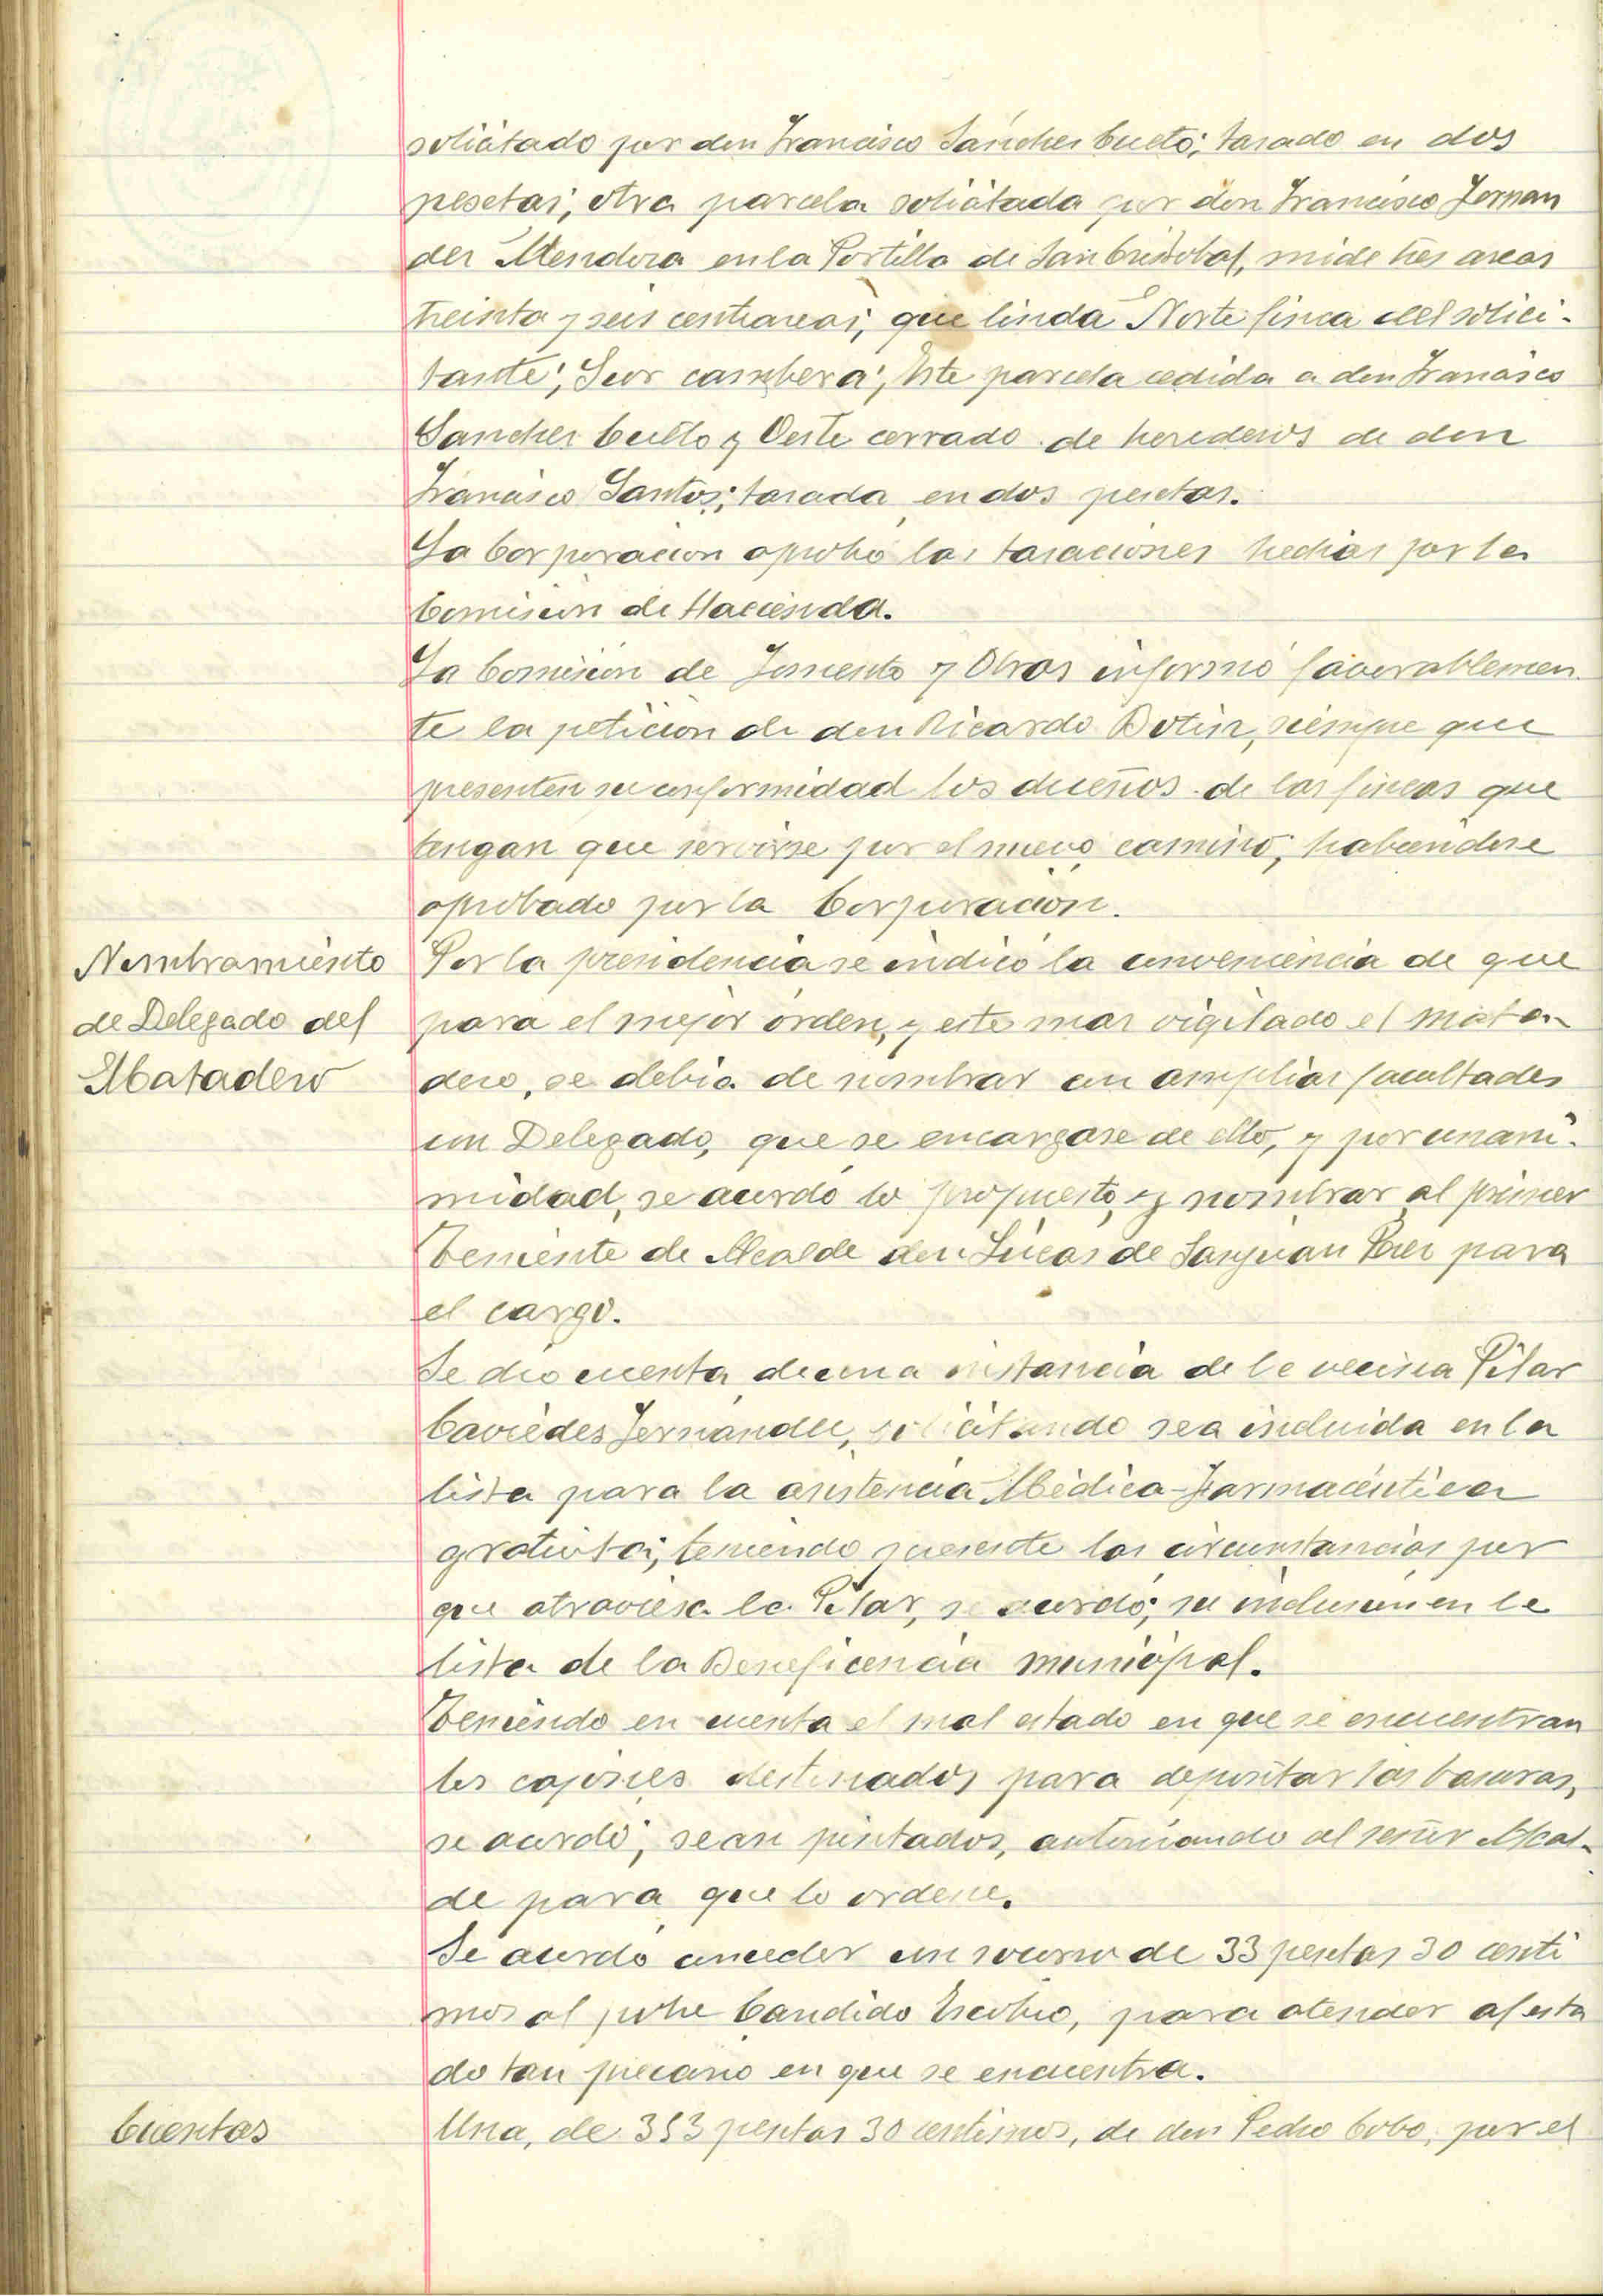 solicitado por don Francisco Sánchez Cueto; tasado en dos
pesetas; otra parcela solicitada por don Francisco Fernan
dez Mendoza en la Portilla de San Cristobal, mide tres areas
treinta y seis centiareas; que linda Norte finca del solici-
tante; Sur cambera; Este parcela cedida a don Francisco
Sanchez Cueto y Oeste cerrado de herederos de don
Francisco Santos; tasada en dos pesetas.
La Corporacion aprobó las tasaciones hechas por la
Comisión de Hacienda.
La Comisión de Fomento y Obras informó favorablemen
te la petición de don Ricardo Botin, siempre que
presenten su conformidad los dueños de las fincas que
tengan que servirse por el nuevo camino; habiendose
aprobado por la Corporación.
Nombramiento
de Delegado del
Matadero
Por la presidencia se indicó la conveniencia de que
para el mejor orden, y esté mas vigilado el mata-
dero, se debia de nombrar con amplias facultades
un Delegado, que se encargase de ello, y por unani-
midad, se acordó lo propuesto, y nombrar al primer
Teniente de Alcalde don Lucas de Sanjuan Perez para
el cargo.
Se dio cuenta de una instancia de la vecina Pilar
Caviedes Fernandez, solicitando sea incluida en la
lista para la asistencia Médica-Farmacéutica
gratuita; teniendo presente las circunstancias por
que atraviesa la Pilar, se acordó; su inclusión en la
lista de la Beneficencia municipal.
Teniendo en cuenta el mal estado en que se encuentran
los cajones destinados para depositar las basuras,
se acordó, sean pintados, autorizando al señor Alcal-
de para que lo ordene.
Se acordó conceder un socorro de 33 pesetas 30 centi
mos al pobre Candido Escobio, para atender al esta
do tan precario en que se encuentra.
Cuentas
Una, de 353 pesetas 30 centimos, de don Pedro Cobo, por el